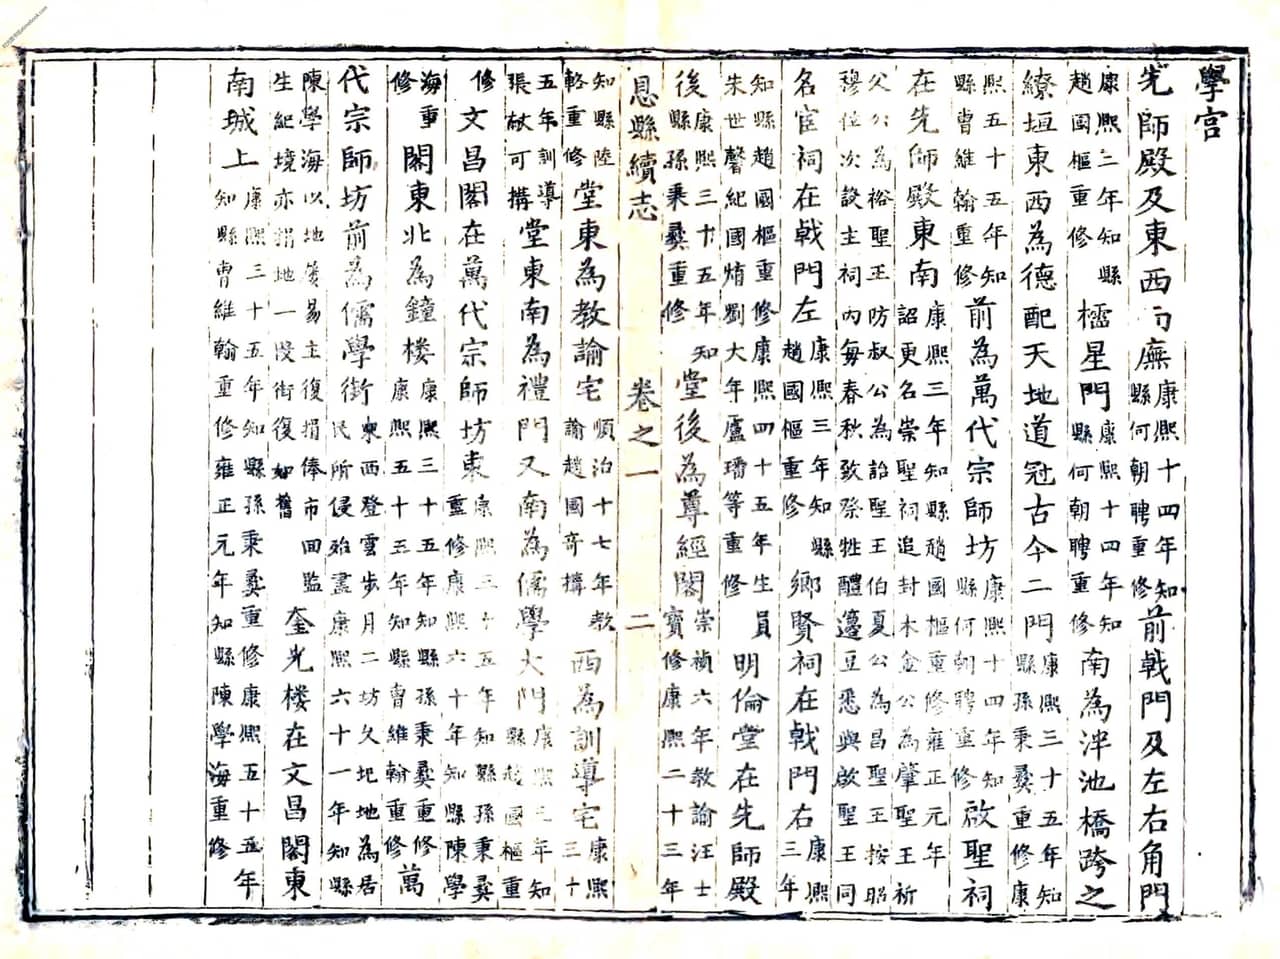 學宮
先師殿及東西兩廡康熙十四年知縣何朝聘重修前戟門及左右角門
康熙三年知縣趙國樞重修櫺星門康熙十四年知縣何朝聘重修南為泮池橋跨之
繚垣東西為德配天地道冠古今二門康熙三十五年知縣孫秉彝重修康
熙五十五年知縣曹維翰重修前為萬代宗師坊康熙十四年知縣何朝聘重修啟聖祠
在先師殿東南康熙三年知縣趙國樞重修雍正元年詔更名崇聖祠追封木金公為肇聖王祈
公公為裕聖王防叔公為詒聖王伯夏公為昌聖王按昭穆位次設主祠內每春秋致祭牲醴籩豆悉與啟聖王同
名宦祠在戟門左康熙三年知縣趙國樞重修鄉賢祠在戟門右康熙三年
知縣趙國樞重修康熙四十五年生員朱世馨紀國㷇劉大年盧璠等重修明倫堂在先師殿
後康熙三十五年知縣孫秉彝重修堂後為尊經閣崇禎六年教諭汪士寳修康熙二十三年
恩縣續志 卷之一 二
知縣陸輅重修堂東為教諭宅順治十七年教諭趙國奇搆西為訓導宅康熙三十
五年訓導張猷可搆堂東南為禮門又南為儒學大門康熙三年知縣趙國樞重
修文昌閣在萬代宗師坊東康熙三十五年知縣孫秉彝重修康熙六十年知縣陳學
海重修閣東北為鐘樓康熙三十五年知縣孫秉彝重修康熙五十五年知縣曹維翰重修萬
代宗師坊前為儒學街東西登雲步月二坊久圯地為居民所侵殆盡康熙六十一年知縣
陳學海以地易主復捐俸市回監生紀境亦捐地一段街復如舊奎光樓在文昌閣東
南城上康熙三十五年知縣孫秉彝重修康熙五十五年知縣曹維翰重修雍正元年知縣陳學海重修